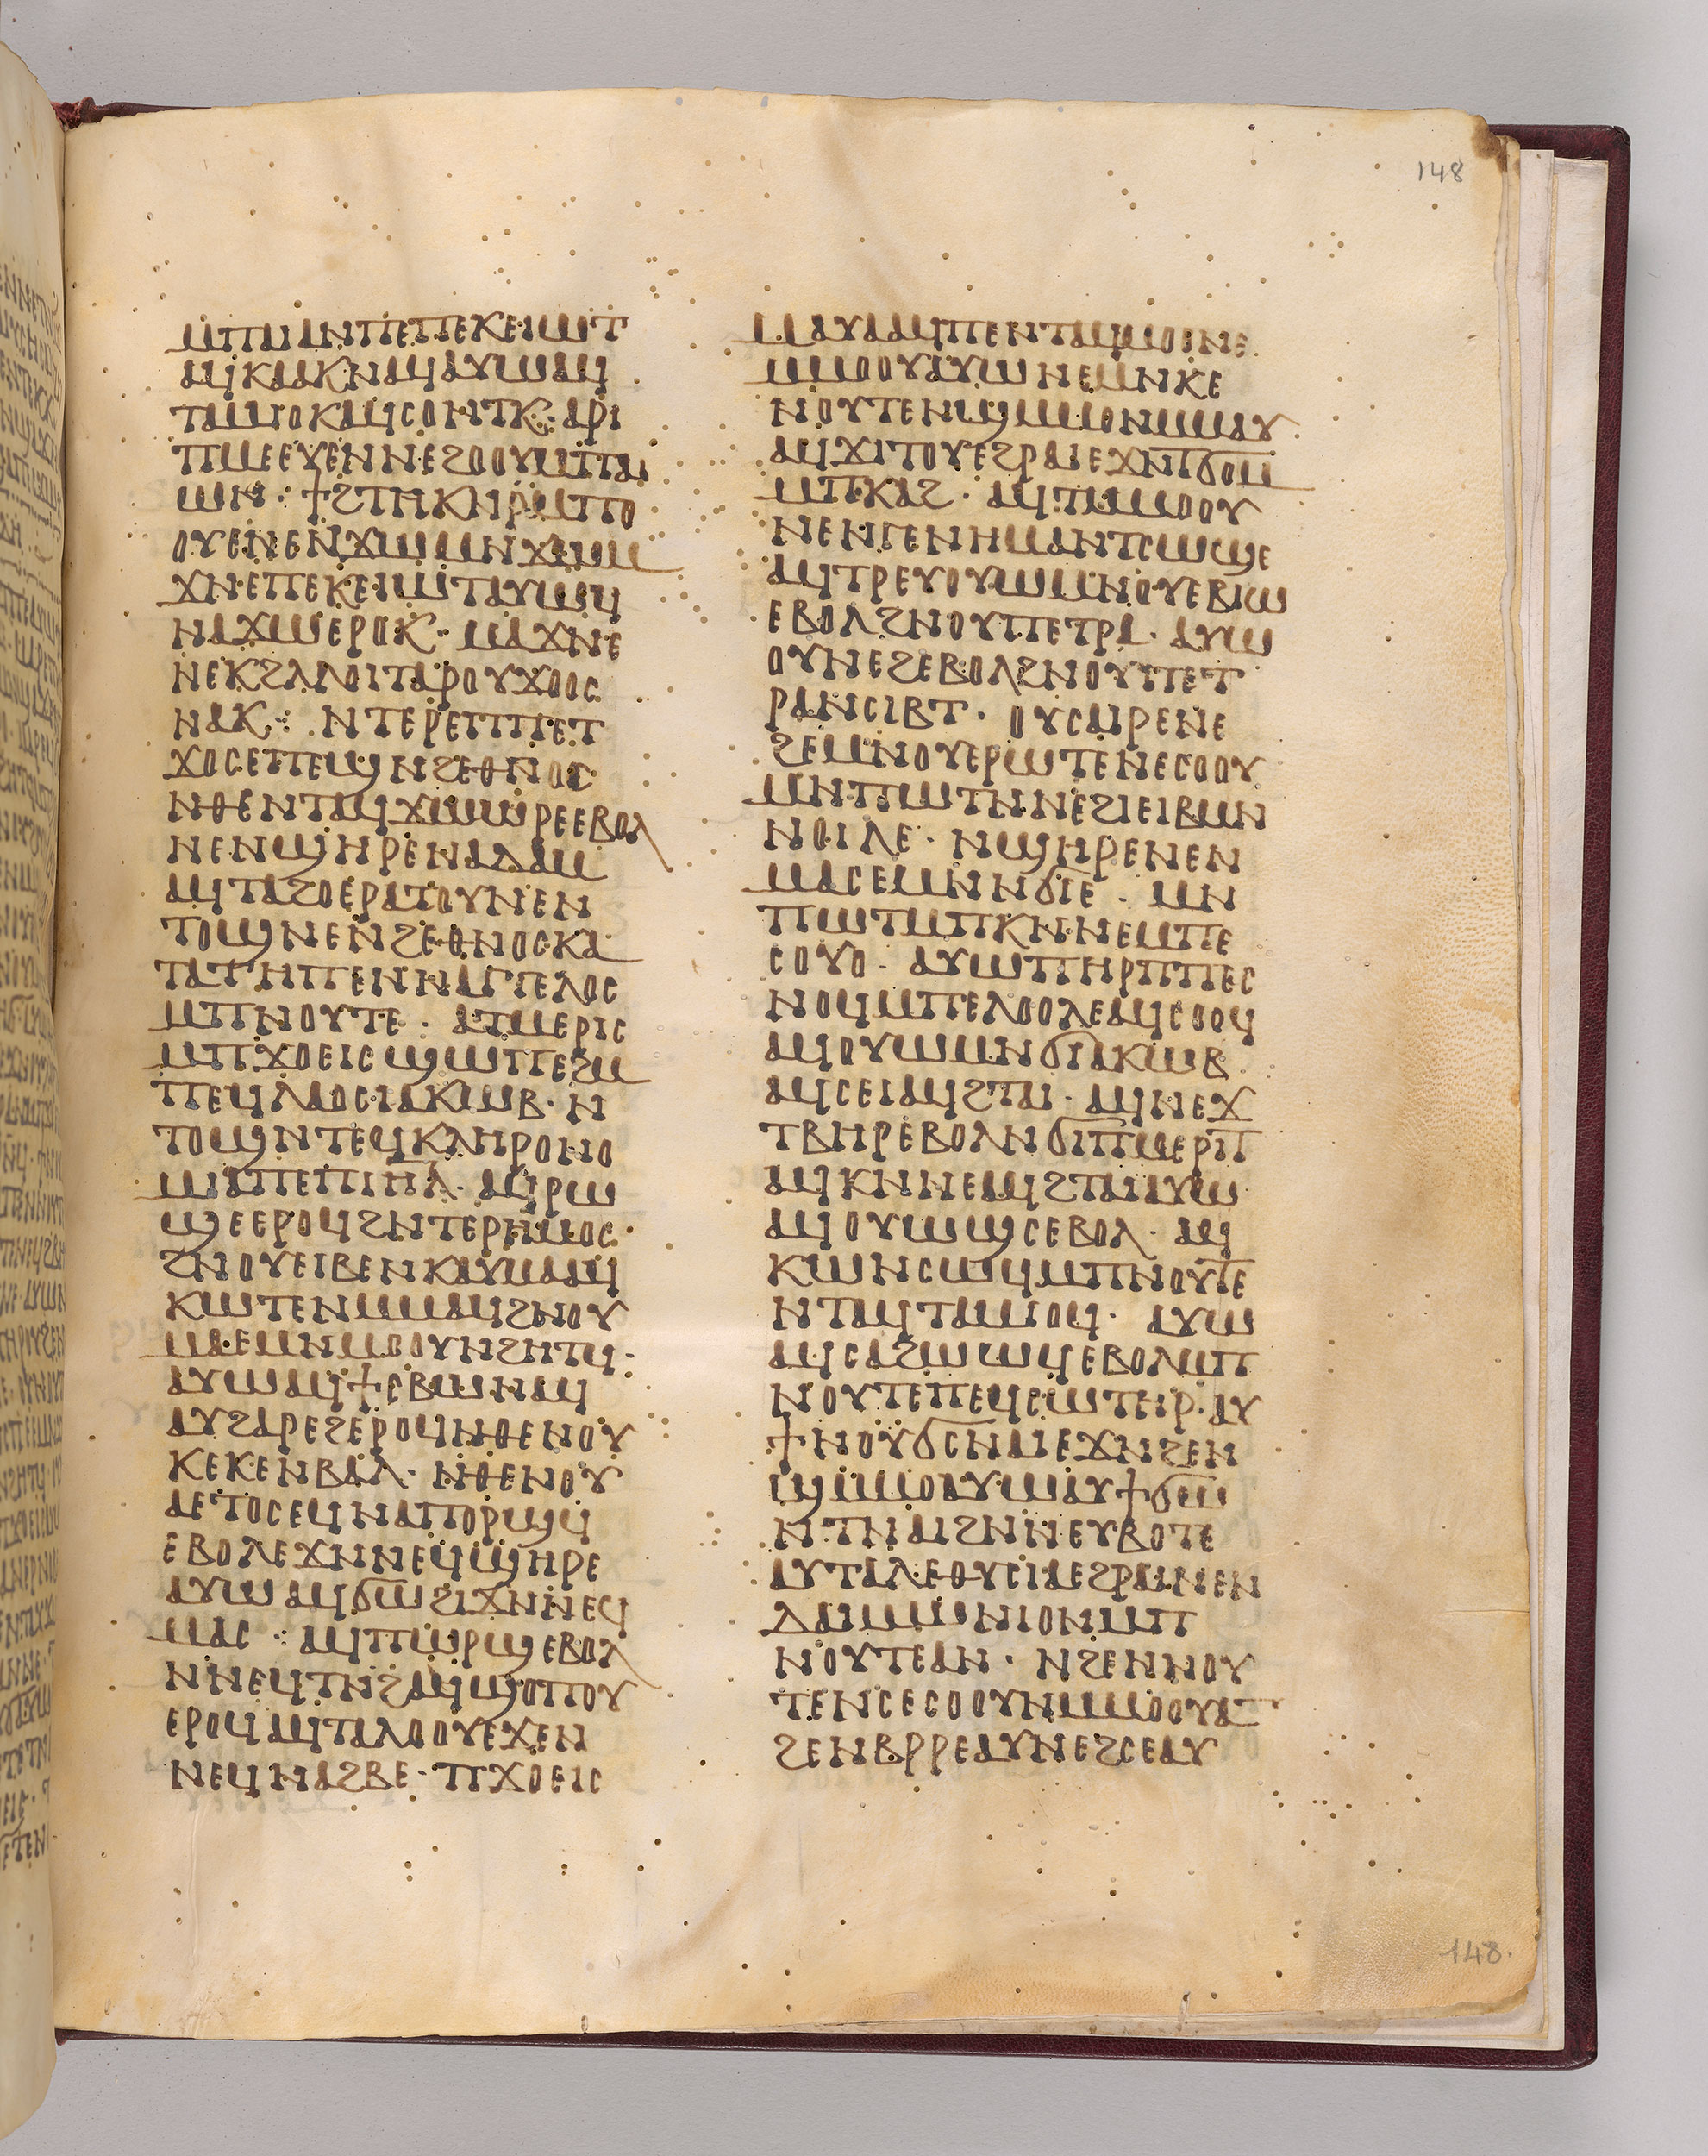 148
ⲙⲡⲁⲓⲁⲛⲡⲉⲡⲉⲕⲉⲓⲱⲧ
ⲁϥⲕⲁⲁⲕⲛⲁϥⲁⲩⲱⲁϥ
ⲧⲁⲙⲓⲟⲕⲁϥⲥⲟⲛⲧⲕ·ⲁⲣⲓ
ⲡⲙⲉⲉⲩⲉⲛⲛⲉϩⲟⲟⲩⲙⲡⲁⲓ
ⲱⲛ · ϯϩⲧⲏⲕⲛⲣⲙⲡⲟ
ⲟⲩⲉⲛⲉⲛϫⲱⲙⲛϫⲱⲙ
ϫⲛⲉⲡⲉⲕⲉⲓⲱⲧⲁⲩⲱϥ
ⲛⲁϫⲱⲉⲣⲟⲕ· ⲙⲁϫⲛⲉ
ⲛⲉⲕϩⲗⲗⲟⲓⲧⲁⲣⲟⲩϫⲟⲟⲥ
ⲛⲁⲕ· ⲛⲧⲉⲣⲉⲡⲡⲉⲧ
ϫⲟⲥⲉⲡⲉϣⲛϩⲉⲑⲛⲟⲥ
ⲛⲑⲉⲛⲧⲁϥϫⲱⲱⲣⲉⲉⲃⲟⲗ
ⲛⲉⲛϣⲏⲣⲉⲛⲁⲇⲁⲙ
ⲁϥⲧⲁϩⲟⲉⲣⲁⲧⲟⲩⲛⲉⲛ
ⲧⲟϣⲛⲉⲛϩⲉⲑⲛⲟⲥⲕⲁ
ⲧⲁⲧⲏⲡⲉⲛⲛⲁⲅⲅⲉⲗⲟⲥ
ⲙⲡⲛⲟⲩⲧⲉ· ⲁⲧⲙⲉⲣⲓⲥ
ⲙⲡϫⲟⲉⲓⲥϣⲱⲡⲉϩⲙ
ⲡⲉϥⲗⲁⲟⲥⲓⲁⲕⲱⲃ· ⲛ
ⲧⲟϣⲛⲧⲉϥⲕⲗⲏⲣⲟⲛⲟ
ⲙⲓⲁⲡⲉⲡⲓⲏⲗ· ⲁϥⲣⲱ
ϣⲉⲉⲣⲟϥϩⲛⲧⲉⲣⲏⲙⲟⲥ·
ϩⲛⲟⲩⲉⲓⲃⲉⲛⲕⲁⲩⲙⲁⲁϥ
ⲕⲱⲧⲉⲛⲙⲙⲁϥϩⲛⲟⲩ
ⲙⲁⲉⲙⲛⲙⲟⲟⲩⲛϩⲏⲧϥ·
ⲁⲩⲱⲁϥϯⲥⲃⲱⲛⲁϥ
ⲁⲩϩⲁⲣⲉϩⲉⲣⲟϥⲛⲑⲉⲛⲟⲩ
ⲕⲉⲕⲉⲛⲃⲁⲗ· ⲛⲑⲉⲛⲟⲩ
ⲁⲉⲧⲟⲥⲉϥⲛⲁⲡⲟⲣϣϥ
ⲉⲃⲟⲗⲉϫⲛⲛⲉϥϣⲏⲣⲉ
ⲁⲩⲱⲁϥϭⲱϩⲓϫⲛⲛⲉϥ
ⲙⲁⲥ · ⲁϥⲡⲱⲣϣⲉⲃⲟⲗ
ⲛⲛⲉϥⲧⲛϩⲁϥϣⲟⲡⲟⲩ
ⲉⲣⲟϥⲁϥⲧⲁⲗⲟⲟⲩⲉϫⲉⲛ
ⲛⲉϥⲛⲁϩⲃⲉ· ⲡϫⲟⲉⲓⲥ
ⲙⲁⲩⲁⲁϥⲡⲉⲛⲧⲁϥⲙⲟⲟⲛⲉ
ⲙⲙⲟⲟⲩⲁⲩⲱⲛⲉⲙⲛⲕⲉ
ⲛⲟⲩⲧⲉⲛϣⲙⲙⲟⲛⲙⲙⲁⲩ
ⲁϥϫⲓⲧⲟⲩⲉϩⲣⲁⲓⲉϫⲛⲧϭⲟⲙ
ⲙⲡⲕⲁϩ· ⲁϥⲧⲙⲙⲟⲟⲩ
ⲛⲉⲛⲅⲉⲛⲏⲙⲁⲛⲧⲥⲱϣⲉ
ⲁϥⲧⲣⲉⲩⲟⲩⲱⲙⲛⲟⲩⲉⲃⲓⲱ
ⲉⲃⲟⲗϩⲛⲟⲩⲡⲉⲧⲣⲁ· ⲁⲩⲱ
ⲟⲩⲛⲉϩⲉⲃⲟⲗϩⲛⲟⲩⲡⲉⲧ
ⲣⲁⲛⲥⲓⲃⲧ· ⲟⲩⲥⲁⲓⲣⲉⲛⲉ
ϩⲉⲙⲛⲟⲩⲉⲣⲱⲧⲉⲛⲉⲥⲟⲟⲩ
ⲙⲛⲡⲱⲧⲛⲛⲉϩⲓⲉⲓⲃⲙⲛ
ⲛⲟⲓⲗⲉ· ⲛϣⲏⲣⲉⲛⲉⲛ
ⲙⲁⲥⲉⲙⲛⲛϭⲓⲉ· ⲙⲛ
ⲡⲱⲧⲙⲡⲕⲛⲛⲉⲙⲡⲉ
ⲥⲟⲩⲟ· ⲁⲩⲱⲡⲏⲣⲡⲡⲉⲥ
ⲛⲟϥⲙⲡⲉⲗⲟⲟⲗⲉⲁϥⲥⲟⲟϥ
ⲁϥⲟⲩⲱⲙⲛϭⲓⲁⲕⲱⲃ
ⲁϥⲥⲉⲓⲁϥϩⲧⲁⲓ· ⲁϥⲛⲉϫ
ⲧⲃⲏⲣⲉⲃⲟⲗⲛϭⲓⲡⲙⲉⲣⲓⲧ
ⲁϥⲕⲛⲛⲉⲁϥϩⲧⲁⲓⲁⲩⲱ
ⲁϥⲟⲩⲱϣⲥⲉⲃⲟⲗ· ⲁϥ
ⲕⲱⲛⲥⲱϥⲙⲡⲛⲟⲩⲧⲉ
ⲛⲧⲁϥⲧⲁⲙⲓⲟϥ· ⲁⲩⲱ
ⲁϥⲥⲁϩⲱⲱϥⲉⲃⲟⲗⲙⲡ
ⲛⲟⲩⲧⲉⲡⲉϥⲥⲱⲧⲏⲣ·ⲁⲩ
ϯⲛⲟⲩϭⲥⲛⲁⲓⲉϫⲛϩⲉⲛ
ϣⲙⲙⲟⲁⲩⲱⲁⲩϯϭⲱ
ⲛⲧⲛⲁⲓϩⲛⲛⲉⲩⲃⲟⲧⲉ
ⲁⲩⲧⲁⲗⲉⲑⲩⲥⲓⲁⲉϩⲣⲁⲓⲛⲉⲛ
ⲇⲁⲓⲙⲱⲛⲓⲟⲛⲙⲡ
ⲛⲟⲩⲧⲉⲁⲛ· ⲛϩⲉⲛⲛⲟⲩ
ⲧⲉⲛⲥⲉⲥⲟⲟⲩⲛⲙⲙⲟⲟⲩⲁⲧ
ϩⲉⲛⲃⲣⲣⲉⲁⲩⲛⲉϩⲥⲉⲁⲩ
148.